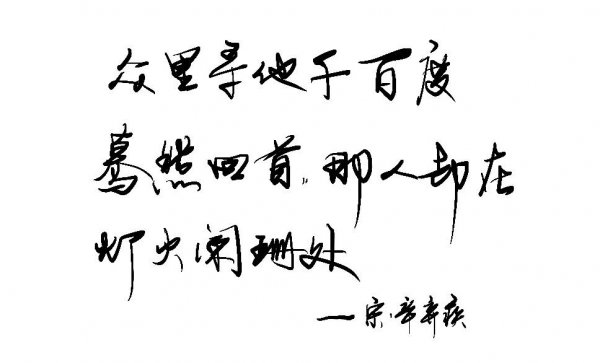 众里寻他千百度
蓦然回首,那人却在
灯火阑珊处
一宋·辛弃疾